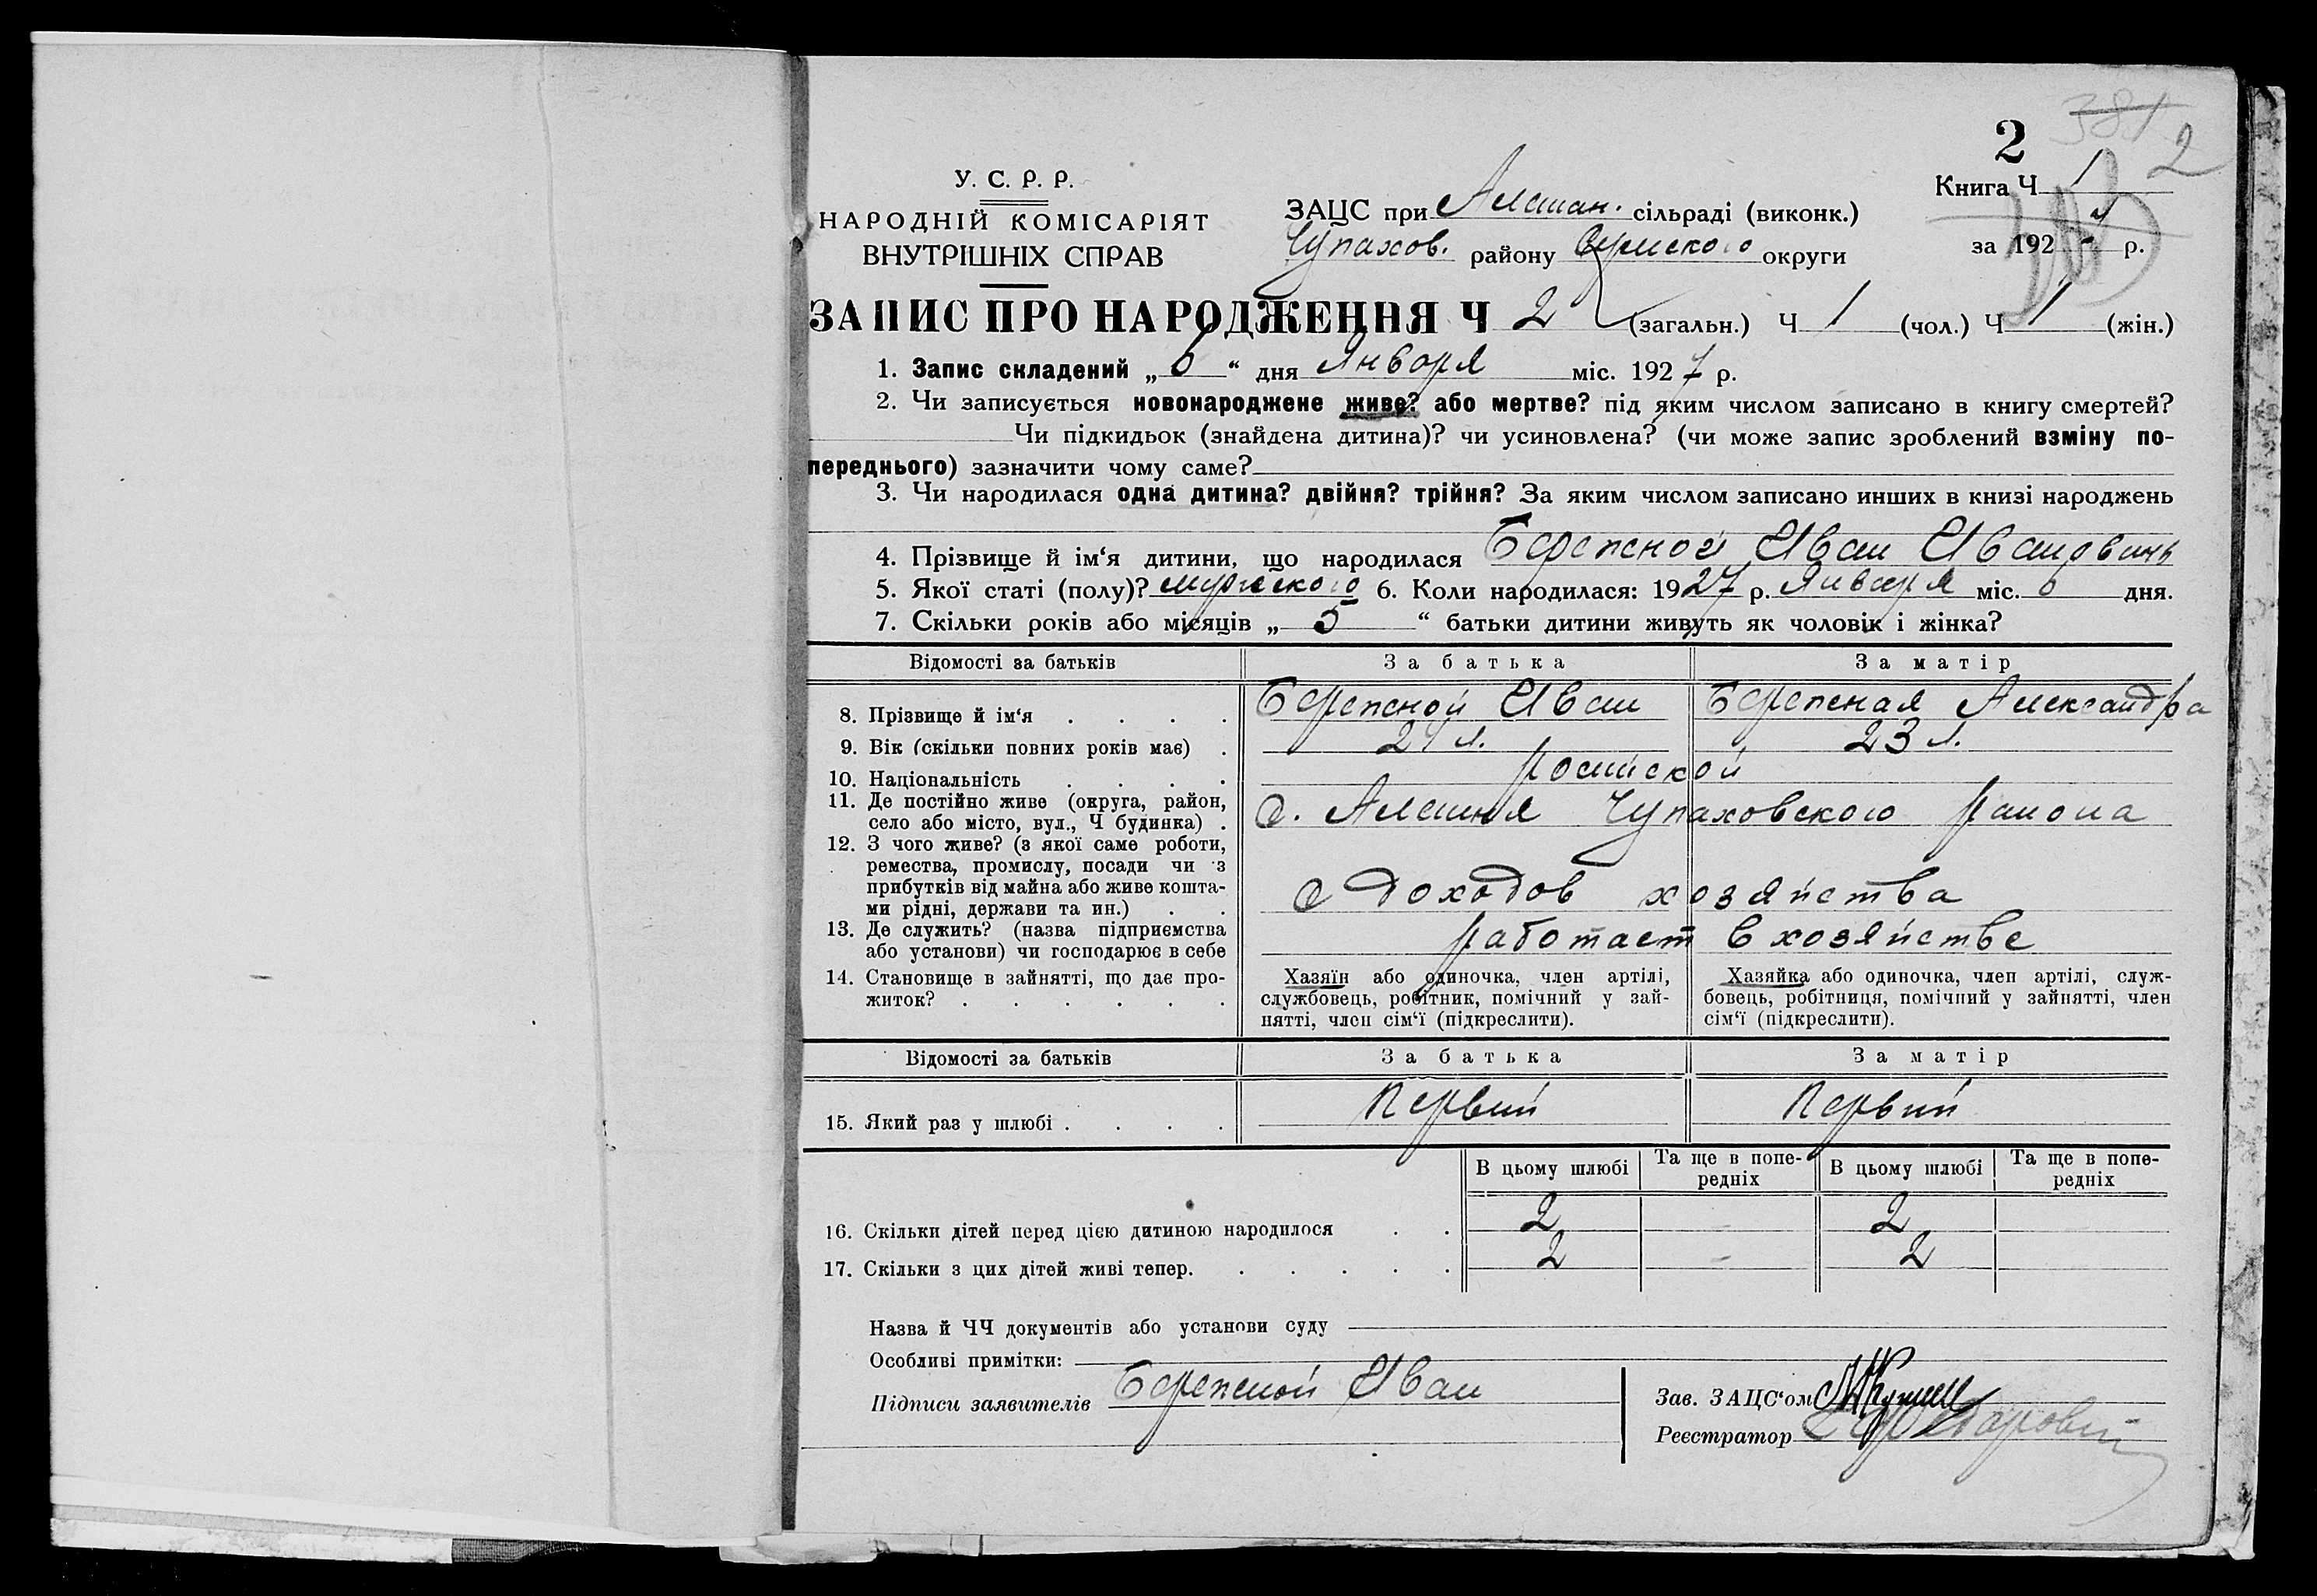 2
381
2
У. С. Р. Р.
НАРОДНІЙ КОМІСАРІЯТ
ВНУТРІШНІХ СПРАВ
Книга Ч 1
ЗАЦС при Алешан. сільраді (виконк.)
Чупахов. району Сумского округи
за 192 р.
ЗАПИС ПРО НАРОДЖЕННЯ Ч 2 (загальн.) Ч 1 (чол.) Ч 1 (жін.)
1. Запис складений „ 6 “ дня Января міс. 1927 р.
2. Чи записується новонароджене живе? або мертве? під яким числом записано в книгу смертей?
Чи підкидьок (знайдена дитина)? чи усиновлена? (чи може запис зроблений взміну по-
переднього) зазначити чому саме?
3. Чи народилася одна дитина? двійня? трійня? За яким числом записано инших в книзі народжень
4. Прізвище й ім‘я дитини, що народилася Бережной Иван Ивановичь
5. Якої статі (полу)? мужского 6. Коли народилася: 1927 р. Января міс. 6 дня.
7. Скільки років або місяців „ 5 “ батьки дитини живуть як чоловік і жінка?
Відомості за батьків За батька За матір
8. Прізвище й ім‘я . . . . Бережной Иван Бережная Александра
9. Вік (скільки повних років має) . 24 л. 23 л.
10. Національність . . . . росийской
11. Де постійно живе (округа, район,
село або місто, вул., Ч будинка) . С. Алешня Чупаховского района
12. З чого живе? (з якої саме роботи,
ремества, промислу, посади чи з
прибутків від майна або живе кошта-
ми рідні, держави та ин.) . . С доходов хозяйства
13. Де служить? (назва підприємства
або установи) чи господарює в себе работает в хозяйстве
14. Становище в зайнятті, що дає про-
житок? . . . . . .
Хазяїн або одиночка, член артілі,
службовець, робітник, помічний у зай-
нятті, член сім‘ї (підкреслити).
Хазяйка або одиночка, член артілі, служ-
бовець, робітниця, помічний у зайнятті, член
сім‘ї (підкреслити).
Відомості за батьків За батька За матір
15. Який раз у шлюбі . . . . Первий Первий
В цьому шлюбі Та ще в попе-
редніх В цьому шлюбі Та ще в попе-
редніх
16. Скільки дітей перед цією дитиною народилося . . 2 - 2
17. Скільки з цих дітей живі тепер. . . . . . 2 - 2
Назва й ЧЧ документів або установи суду
Особливі примітки:
Підписи заявителів Бережной Иван
Зав. ЗАЦС‘ом
Реєстратор